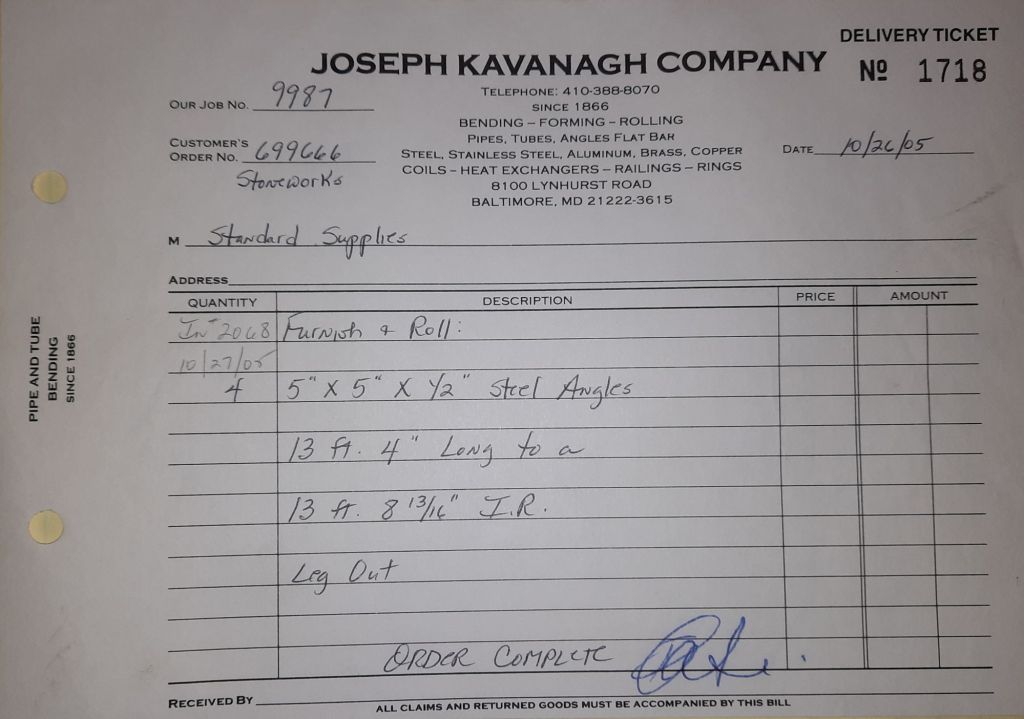 DELIVERY TICKET
JOSEPH KAVANAGH COMPANY
Nº 1718
TELEPHONE: 410-388-8070
SINCE 1866
BENDING – FORMING – ROLLING
PIPES, TUBES, ANGLES FLAT BAR
STEEL, STAINLESS STEEL, ALUMINUM, BRASS, COPPER
COILS – HEAT EXCHANGERS – RAILINGS – RINGS
8100 LYNHURST ROAD
BALTIMORE, MD 21222-3615
OUR JOB NO. 9987
CUSTOMER'S
ORDER NO. 699666
Stoneworks
DATE 10/26/05
M Standard Supplies
ADDRESS
QUANTITY DESCRIPTION PRICE AMOUNT
Inv 2068 Furnish & Roll:
10/27/05
4 5" X 5" X 1/2" Steel Angles
13 ft. 4" Long to a
13 ft. 8 13/16" I.R.
Leg Out
ORDER COMPLETE
RECEIVED BY
ALL CLAIMS AND RETURNED GOODS MUST BE ACCOMPANIED BY THIS BILL
PIPE AND TUBE
BENDING
SINCE 1866